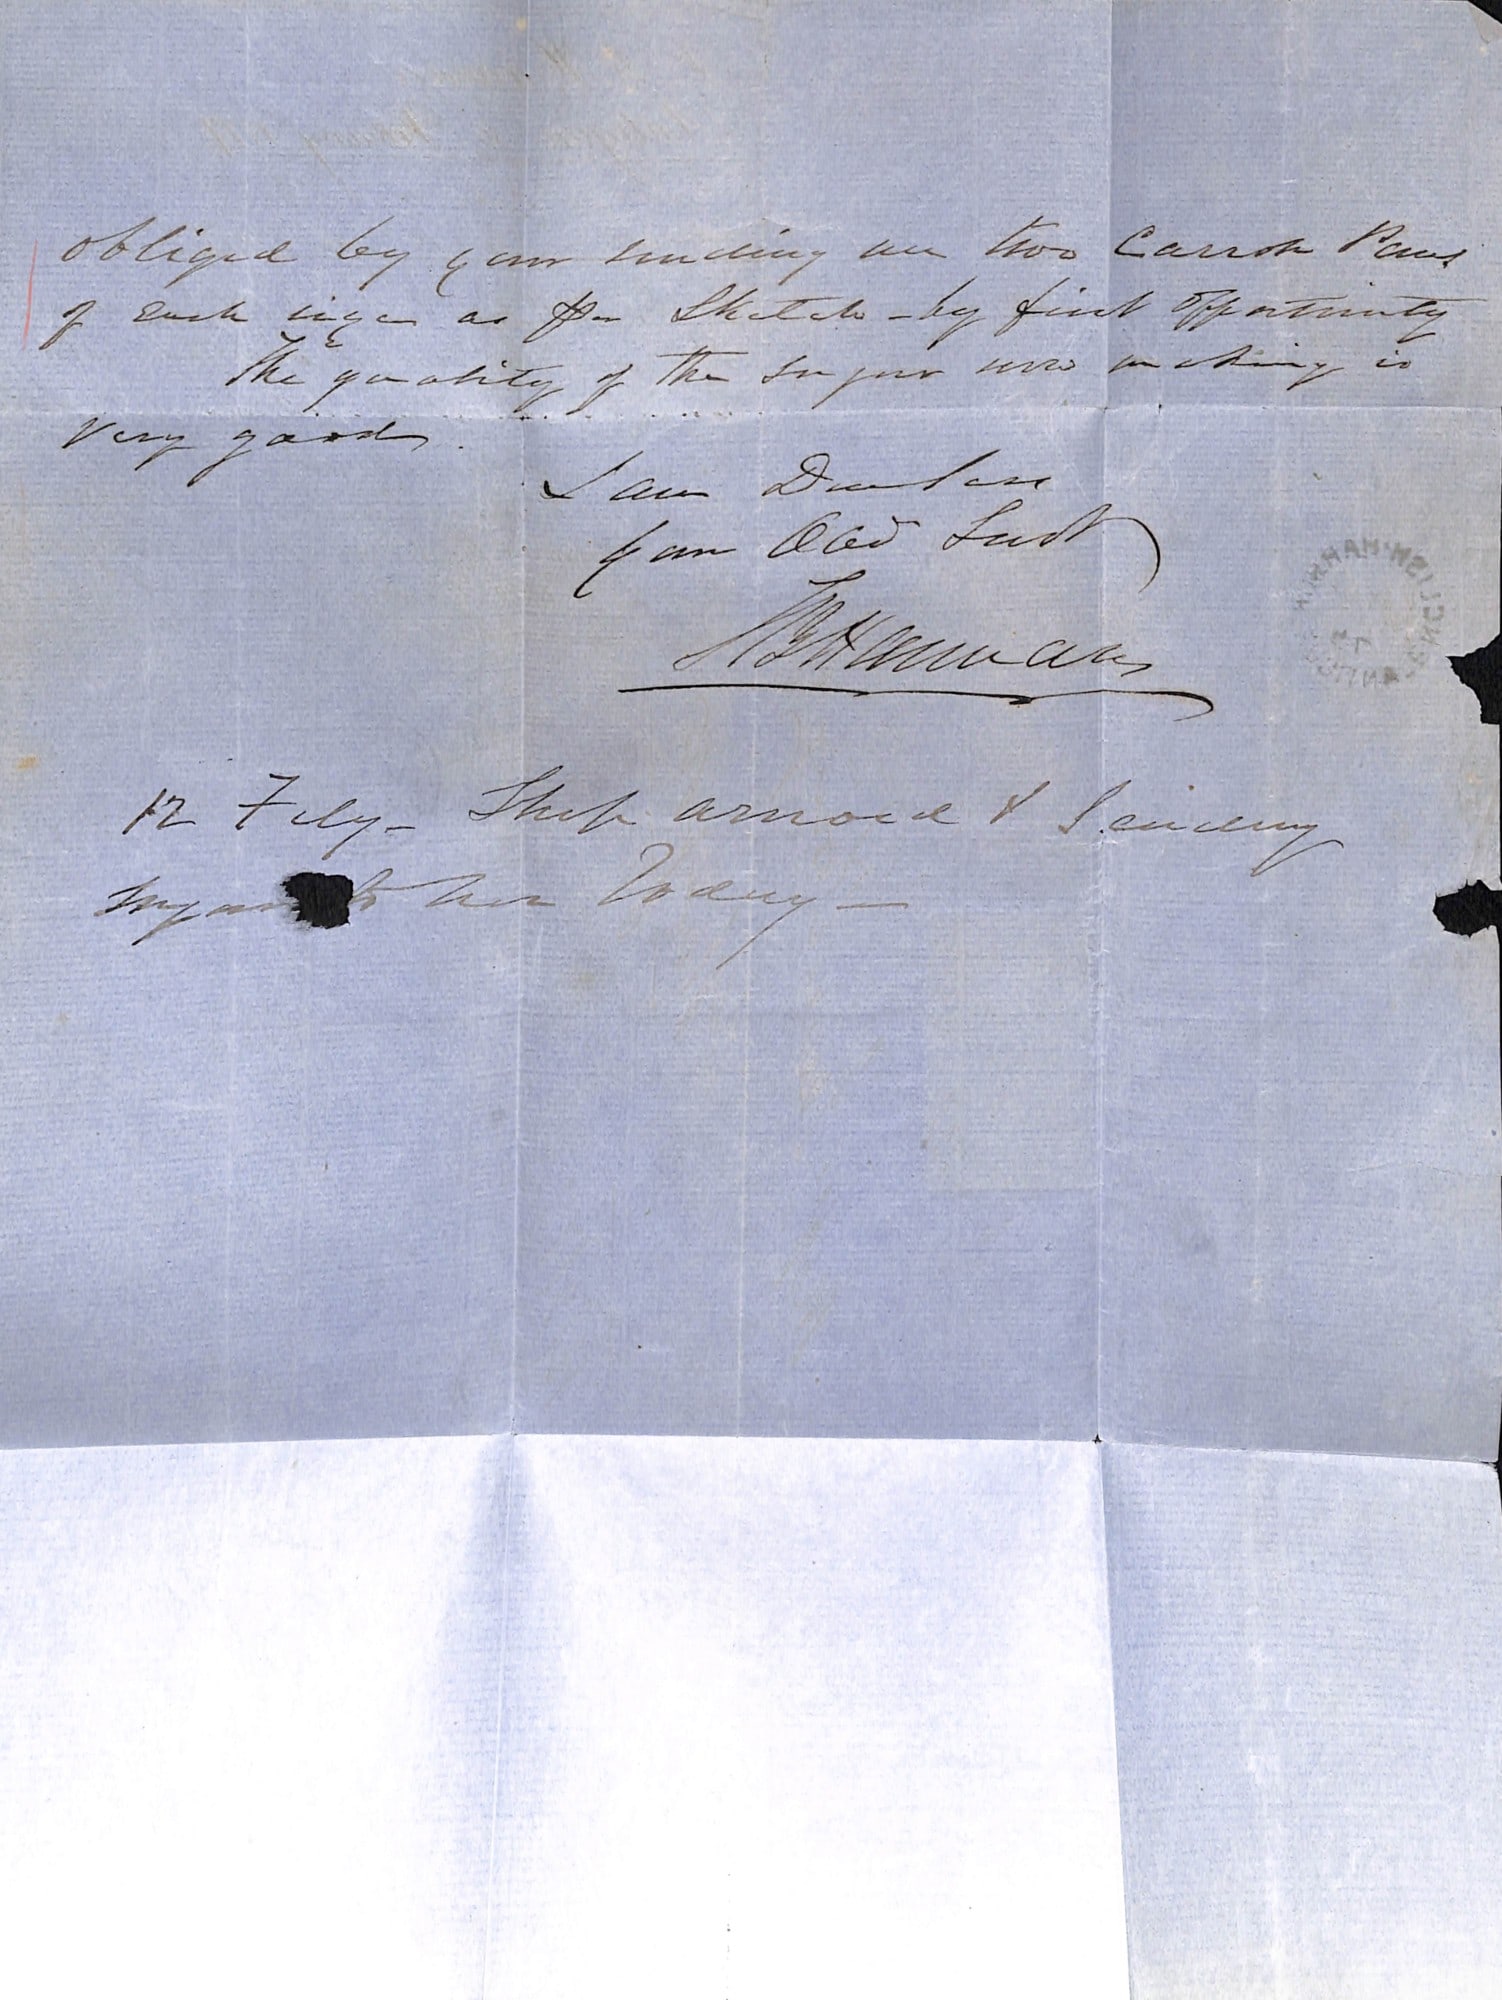 obliged by your sending me two Carron Pans
of each size as per Sketch - by first opportunity
The quality of the sugar now making is
very good.
I am Dear Sir
Your Obd Servt
Hannan
12 Feby - Ship arrived &
sugar to her today -
ENGLISH HAR
ANTIGUA